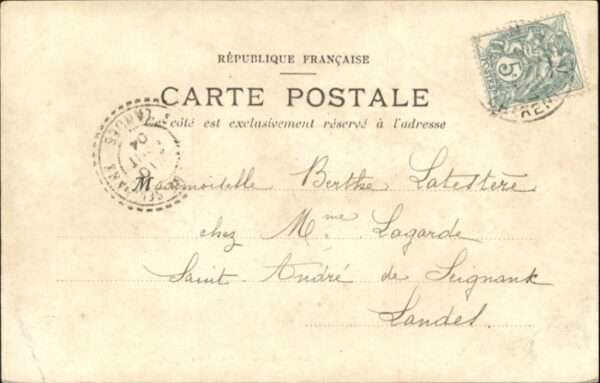 RÉPUBLIQUE FRANÇAISE
CARTE POSTALE
Ce côté est exclusivement réservé à l'adresse
5
LANDES
04
Mademoiselle Berthe Latestère
chez Mme Lagarde
Saint-André de Seignank
Landes.